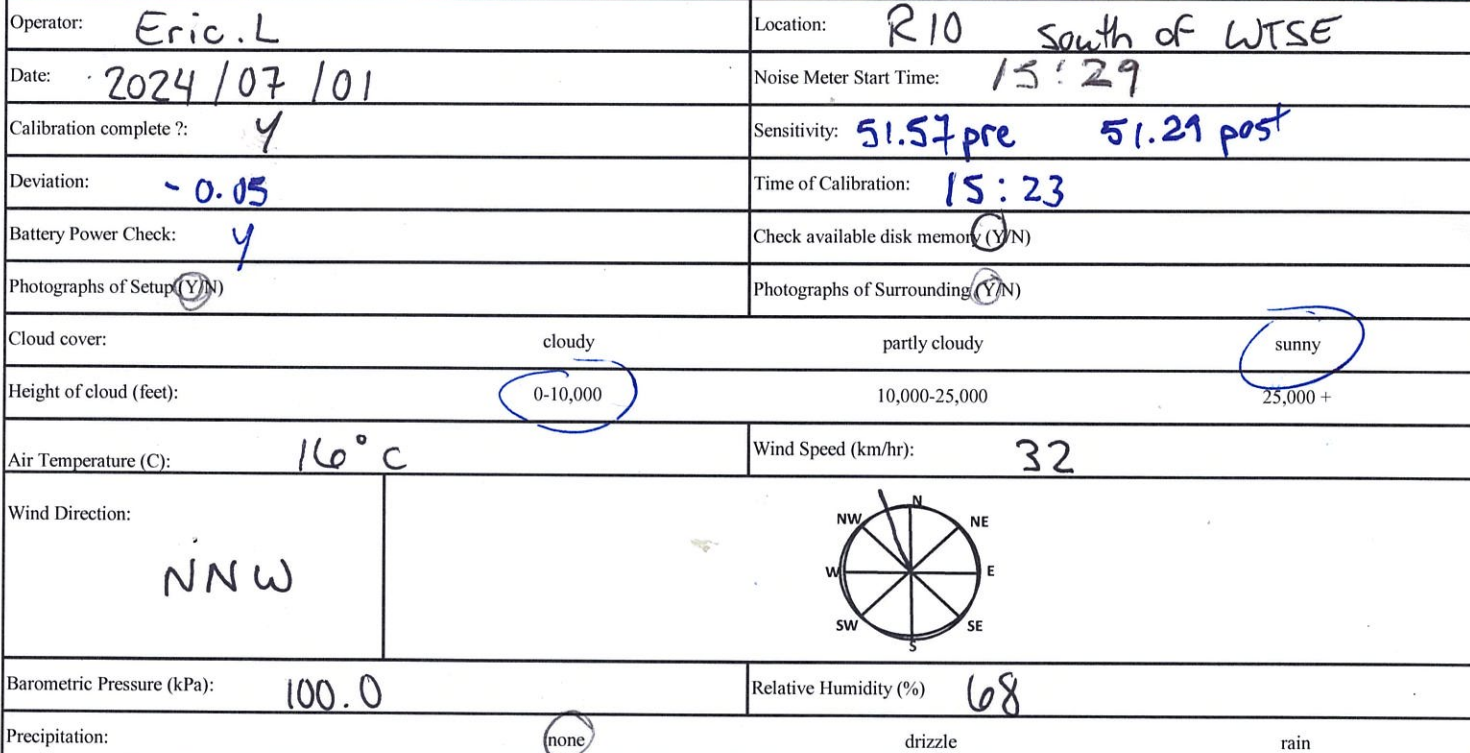 Operator: Eric.L Location: R10 South of WTSE
Date: 2024/07/01 Noise Meter Start Time: 15:29
Calibration complete ?: Y Sensitivity: 51.57 pre 51.29 post
Deviation: - 0.05 Time of Calibration: 15:23
Battery Power Check: Y Check available disk memory (Y/N)
Photographs of Setup (Y/N) Photographs of Surrounding (Y/N)
Cloud cover: cloudy partly cloudy sunny
Height of cloud (feet): 0-10,000 10,000-25,000 25,000 +
Air Temperature (C): 16°C Wind Speed (km/hr): 32
Wind Direction:
NNW
N
NW NE
W E
SW SE
S
Barometric Pressure (kPa): 100.0 Relative Humidity (%) 68
Precipitation: none drizzle rain